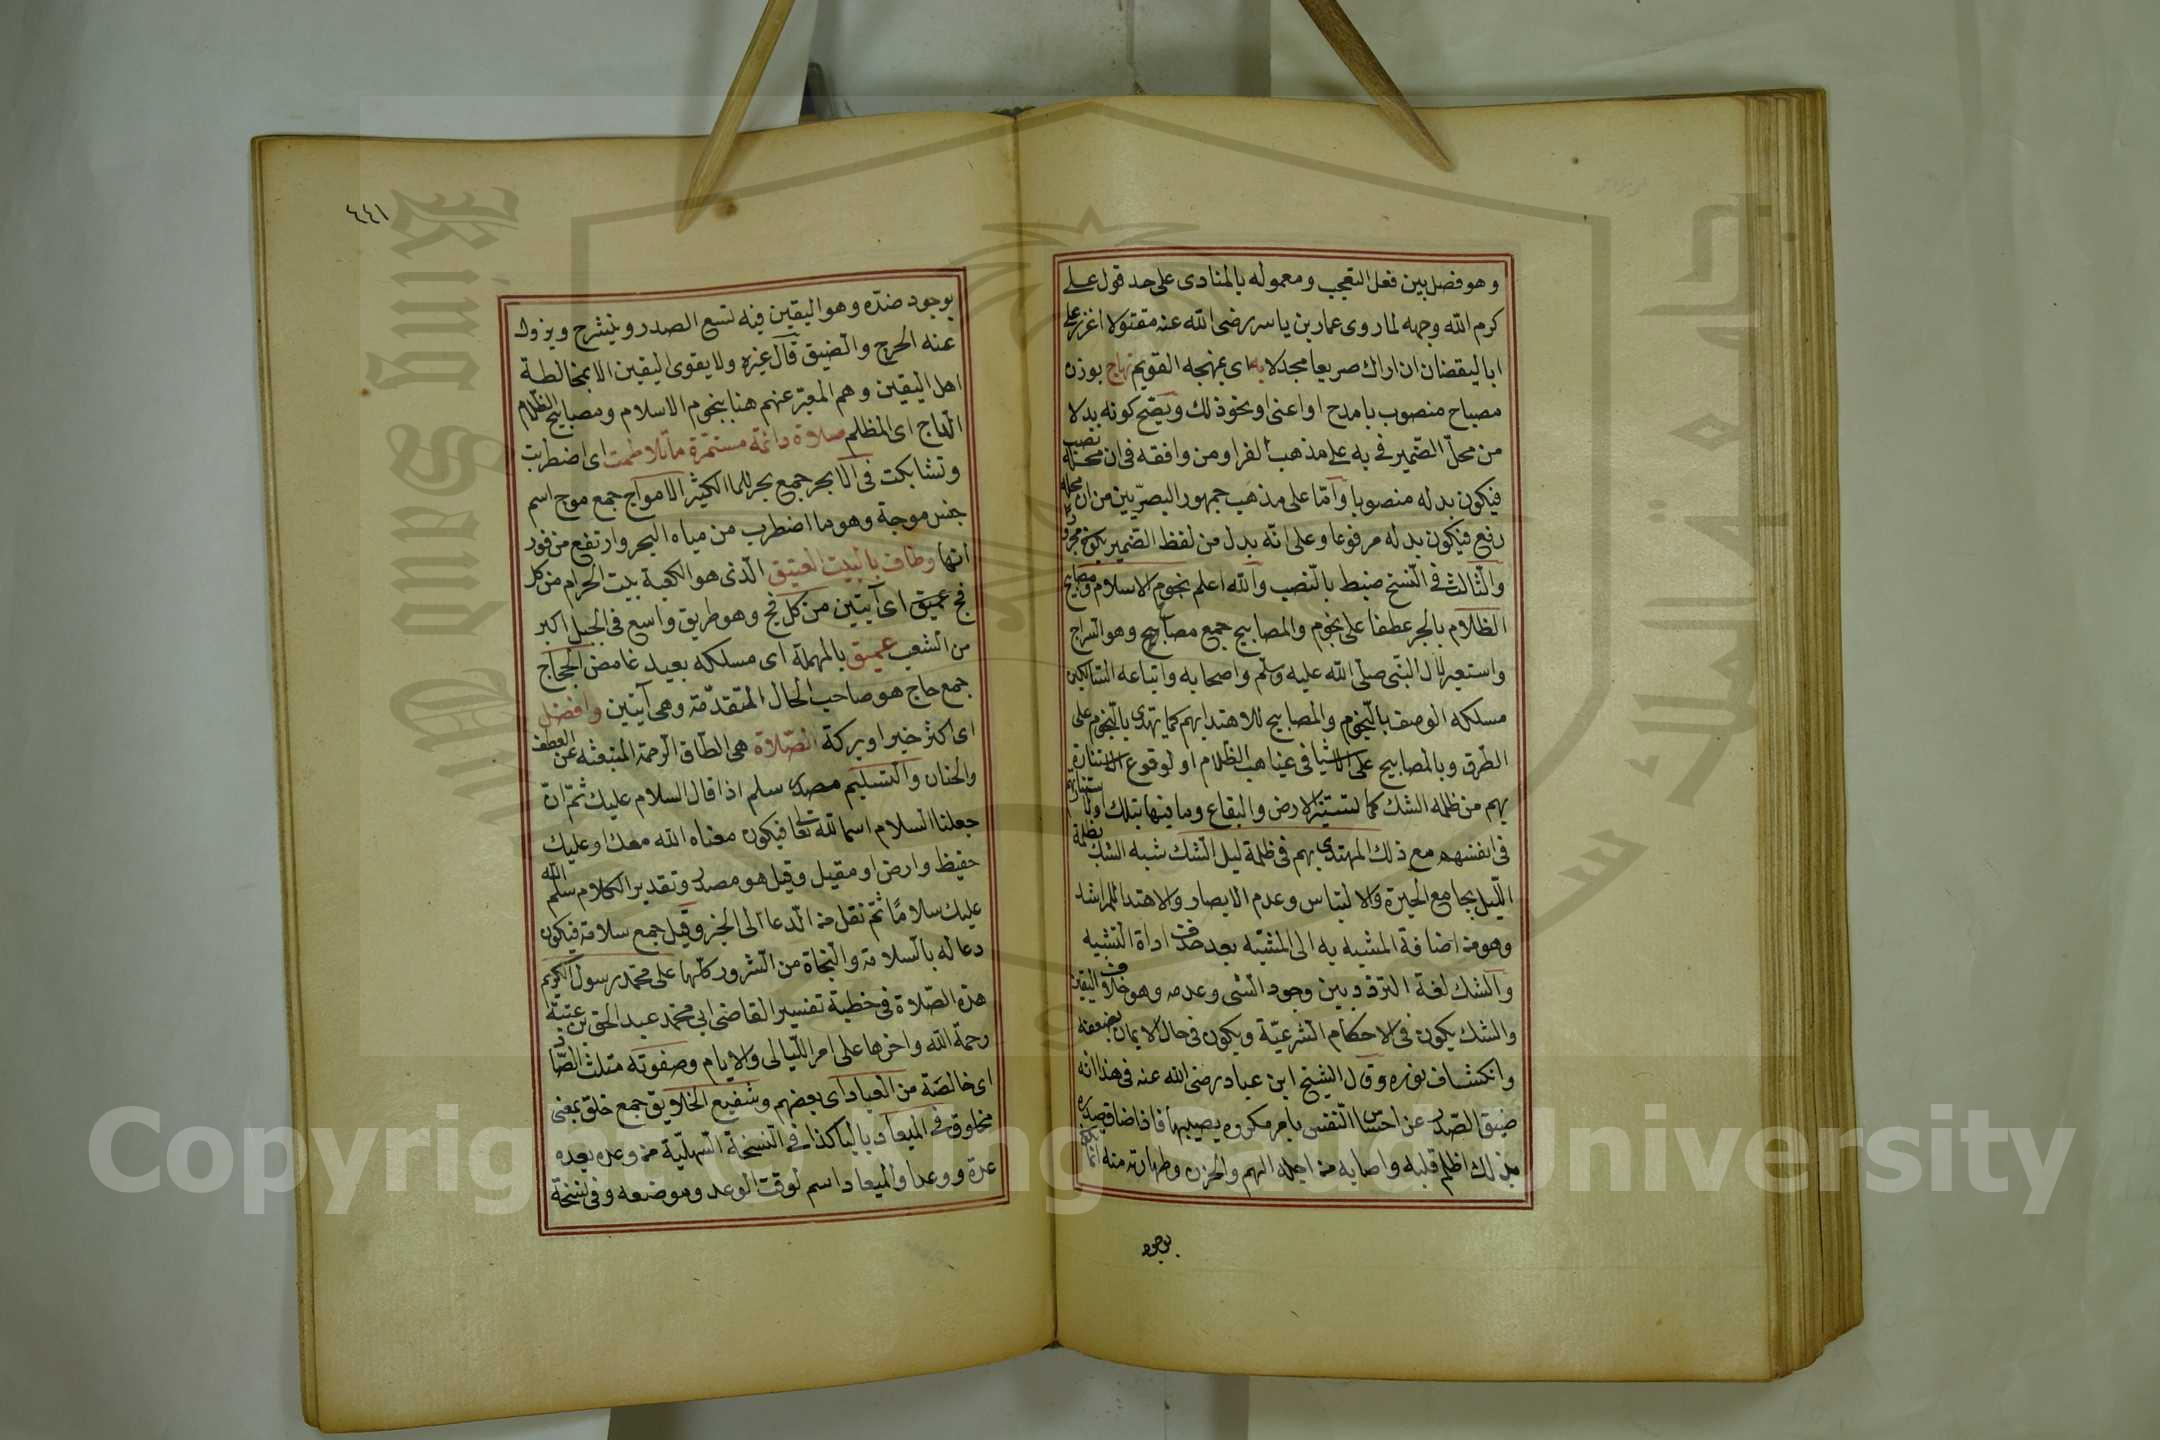 وهو فصل بين فعل التعجب ومعموله بالمنادى على حد قول على
كرم الله وجهه لما روى عمار بن ياسر رضى الله عنه مقتولا اعزز على
ابا اليقضان ان اراك صريعا مجدلا به اى بمنهجه القويم تهاج بوزن
مصباح منصوب بامدح او اعنى او نحو ذلك ويصح كونه بدلا
من محلّ الضمير فى به على مذهب الفرا ومن وافقه فى ان محله نصب
فيكون بدله منصوبا وأمّا على مذهب جمهور البصريين من ان محله
رفع فيكون بدله مرفوعا وعلى انّه بدل من لفظ الضمير يكون مجرورا
والثالث فى النسخ ضبط بالنصب والله اعلم نجوم الاسلام ومصابيح
الظلام بالجر عطفا على نجوم والمصابيح جمع مصباح وهو السراج
واستعير لآل النبى صلى الله عليه وسلم واصحابه واتباعه السالكين
مسلكه الوصف بالنجوم والمصابيح للاهتدا بهم كما يهتدى بالنجوم على
الطرق وبالمصابيح على الاشيا فى غياهب الظلام او لوقوع الاستنارة
بهم من ظلمه الشك كما تستنير الارض والبقاع وما فيها بتلك
فى انفسهم مع ذلك المهتدى بهم فى ظلمة ليل الشك شبه الشك بظلمة
الليل بجامع الحيرة والالتباس وعدم الابصار والاهتدا للمراشد
وهو من اضافة المشبه به الى المشبّه بعد حذف اداة التشبيه
والشك لغة التردد بين وجود الشى وعدمه وهو خلاف اليقين
والشك يكون فى الاحكام الشرعيّة ويكون فى حال الايمان بضعفه
وانكشاف نوره وقال الشيخ ابن عباد رضى الله عنه فى هذا انه
ضيق الصدر عن احساس النفس بامر مكروه يصيبها فاذا ضاق صدره
بذلك اظلم قلبه واصابه من اجله الهم والحزن وطهارته منه
بوجود
٤٤١
بوجود ضدّه وهو اليقين فبه تسع الصدر وينشرح ويزول
عنه الحرج والضيق قال غيره ولا يقوى اليقين الا بمخالطة
اهل اليقين وهم المعبّر عنهم هنا بنجوم الاسلام ومصابيح الظلام
الداج اى المظلم صلاة دائمة مستمرة ما تلاطمت اى اضطربت
وتشابكت فى الابحر جمع بحر للما الكثير الامواج جمع موج اسم
جنس موجة وهو ما اضطرب من مياه البحر وارتفع من فور
انها وطاف بالبيت العتيق الذى هو الكعبة بيت الحرام من كل
فج عميق اى آيتين من كل فج وهو طريق واسع فى الجبل اكبر
من الشعب عميق بالمهملة اى مسلكه بعيد غامض الحجاج
جمع حاج هو صاحب الحال المتقدّمة وهى آيتين وافضل
اى اكثر خيرا وبركة الصلاة هى الطاق الرحمة المنبعثه عن العطف
والحنان والتسليم مصدر سلم اذا قال السلام عليك ثمّ انّ
جعلنا السلام اسما لله تعا فيكون معناه الله معك او عليك
حفيظ وارض او مقيل وقيل هو مصدر وتقدير الكلام سلم الله
عليك سلامًا ثمّ نقل من الدعا الى الخبر وقيل جمع سلامة فيكون
دعا له بالسلامة والنجاة من الشرور كلها على محمّد رسول الكريم
هذه الصّلاة فى خطبة تفسير القاضى ابى محمد عبد الحق بن عتبة
رحمة الله واخرها على امر الليالى والايام وصفوته مثلث الصّاد
اى خالصَة من العباد اى بعضهم وشفيع الخلايق جمع خلق بمعنى
مخلوق فى الميعاد باليا كذا فى النسخة السّهليّة من وعده يعده
عدة ووعدا والميعاد اسم لوقت الوعد وموضعه وفى نسخة
Copyright © King Saud University
King Saud University
جامعة الملك سعود